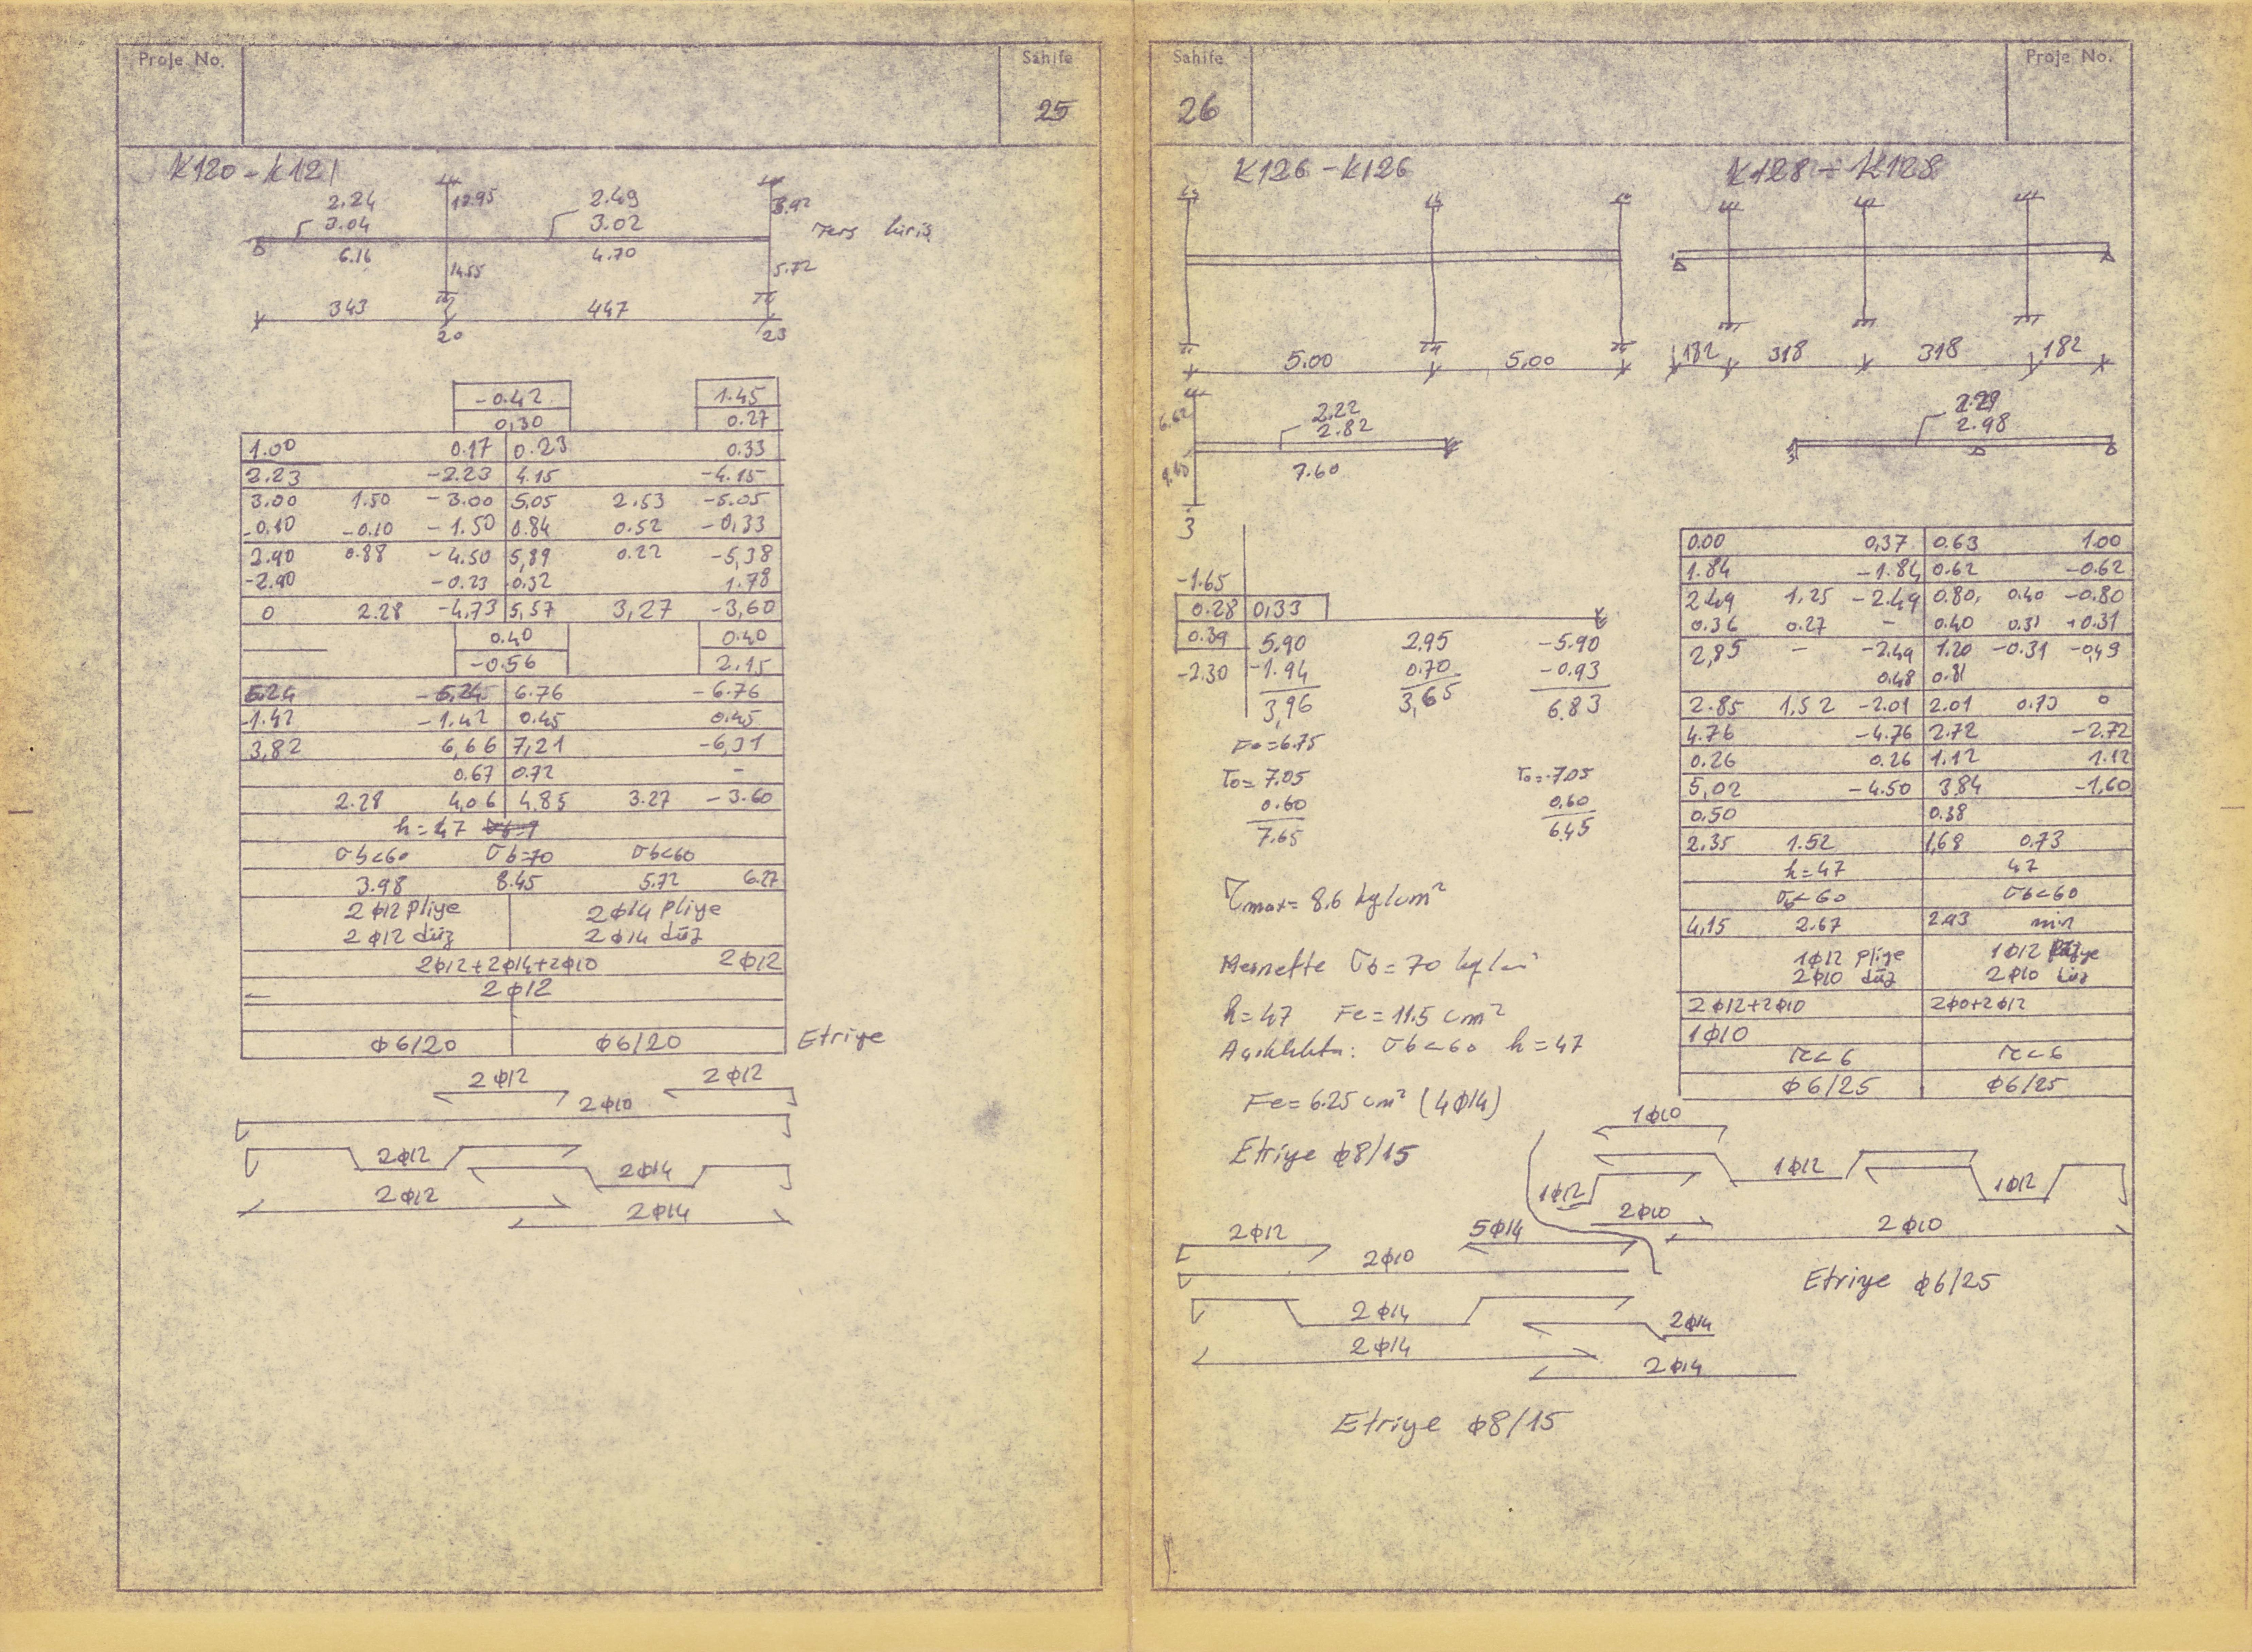 Proje No.
Sahife
25
K120-K121
2.24
3.04
6.16
12.95
14.55
2.49
3.02
4.70
5.72
Ters kiriş
343
447
20
23
-0.42
1.45
0,30
0.27
1.00 0.17 0.23 0.33
2.23 -2.23 4.15 -4.15
3.00 1.50 -3.00 5.05 2.53 -5.05
-0.10 -0.10 -1.50 0.84 0.52 -0,33
2.90 0.88 -4.50 5,89 0.22 -5,38
-2.90 -0.23 0.32 1.78
0 2.28 -4,73 5,57 3,27 -3,60
0.40 0.40
-0.56 2.15
5.24 -5.24 6.76 -6.76
-1.42 -1.42 0.45 0.45
3,82 6,66 7,21 -6,31
0.67 0.72 -
2.28 4,06 4,85 3.27 -3.60
h=47
σb<60 σb=70 σb<60
3.98 8.45 5.72 6.27
2ϕ12 Pliye 2ϕ14 Pliye
2ϕ12 düz 2ϕ14 düz
2ϕ12+2ϕ14+2ϕ10 2ϕ12
2ϕ12
ϕ6/20 ϕ6/20 Etriye
2ϕ12 2ϕ12
2ϕ10
2ϕ12 2ϕ14
2ϕ12 2ϕ14
Sahife
26
Proje No.
K126-K126
5.00 5,00
2.22
2.82
7.60
3
-1.65
0.28 0,33
0.39 5,90 2,95 -5.90
-2.30 -1.94 0.70 -0.93
3,96 3,65 6.83
Fe=6.75
τo=7.05 τo=7.05
0.60 0,60
7.65 6.45
τmax=8.6 kg/cm²
Mesnette σb=70 kg/cm²
h=47 Fe=11.5 cm²
Açıklıkta: σb<60 h=47
Fe=6.25 cm² (4ϕ14)
Etriye ϕ8/15
2ϕ12 5ϕ14
2ϕ10
2ϕ14 2ϕ14
2ϕ14 2ϕ14
Etriye ϕ8/15
K128-K128
182 318 318 182
2.98
0.00 0,37 0.63 1.00
1.84 -1.84 0.62 -0.62
2.49 1,25 -2.49 0.80 0.40 -0.80
0.36 0.27 - 0.40 0.31 +0.31
2,85 - -2.49 1.20 -0.31 -0,49
0.48 0.81
2.85 1,52 -2.01 2.01 0.73 0
4.76 -4.76 2.72 -2.72
0.26 0.26 1.12 1.12
5,02 -4.50 3,84 -1,60
0.50 0.38
2.35 1.52 1,68 0.73
h=47 47
σb<60 σb<60
4,15 2.67 2.93 min
1ϕ12 Pliye 1ϕ12 Pliye
2ϕ10 düz 2ϕ10 düz
2ϕ12+2ϕ10 2ϕ10+2ϕ12
1ϕ10
τ<6 τ<6
ϕ6/25 ϕ6/25
1ϕ10
1ϕ12 1ϕ12 1ϕ12
2ϕ10 2ϕ10
Etriye ϕ6/25